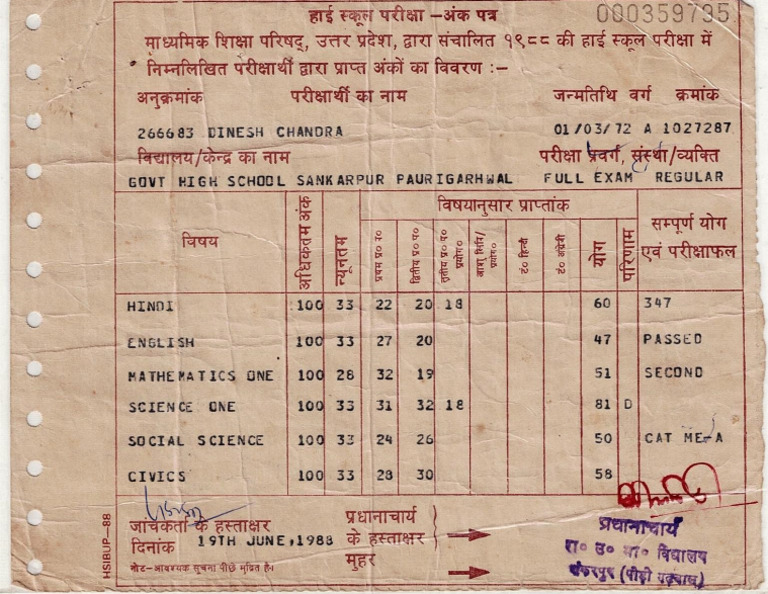 हाई स्कूल परीक्षा -अंक पत्र 000359795
माध्यमिक शिक्षा परिषद्, उत्तर प्रदेश, द्वारा संचालित १९८८ की हाई स्कूल परीक्षा में
निम्नलिखित परीक्षार्थी द्वारा प्राप्त अंकों का विवरण :-
अनुक्रमांक परीक्षार्थी का नाम जन्मतिथि वर्ग क्रमांक
266683 DINESH CHANDRA 01/03/72 A 1027287
विद्यालय/केन्द्र का नाम परीक्षा प्रवर्ग, संस्था/व्यक्ति
GOVT HIGH SCHOOL SANKARPUR PAURIGARHWAL FULL EXAM REGULAR
विषय अधिकतम अंक न्यूनतम विषयानुसार प्राप्तांक सम्पूर्ण योग
प्रथम प्र० प० द्वितीय प्र० प० तृतीय प्र० प० प्रयोग० टं० हिन्दी टं० अंग्रेजी योग परिणाम एवं परीक्षाफल
HINDI 100 33 22 20 18 60 347
ENGLISH 100 33 27 20 47 PASSED
MATHEMATICS ONE 100 28 32 19 51 SECOND
SCIENCE ONE 100 33 31 32 18 81 D
SOCIAL SCIENCE 100 33 24 26 50 CAT ME-A
CIVICS 100 33 28 30 58
जांचकर्ता के हस्ताक्षर प्रधानाचार्य
दिनांक 19TH JUNE,1988 के हस्ताक्षर
मुहर
नोट-आवश्यक सूचना पीछे मुद्रित है।
HSIBUP-88
प्रधानाचार्य
रा० उ० मा० विद्यालय
शंकरपुर (पौड़ी गढ़वाल)